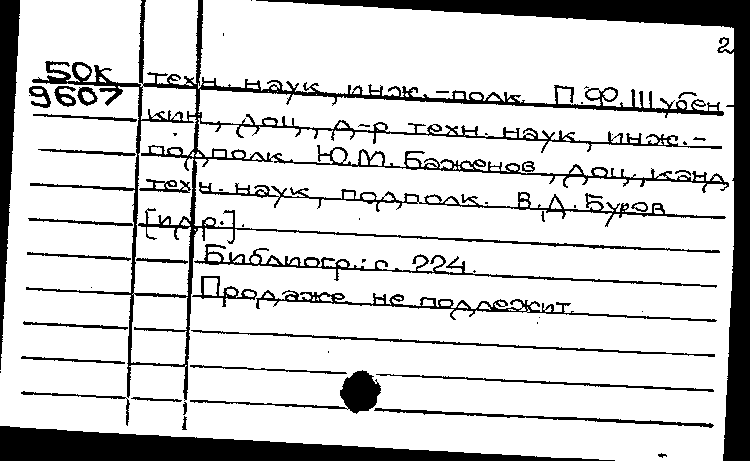 2
50К
9607
техн. наук, инж.-полк. П.Ф.Шубен-
кин, доц., д-р техн. наук, инж.-
подполк. Ю.М. Баженов, доц., канд.
техн. наук, подполк. В.Д. Буров
[и др.].
Библиогр.: с. 224.
Продаже не подлежит.